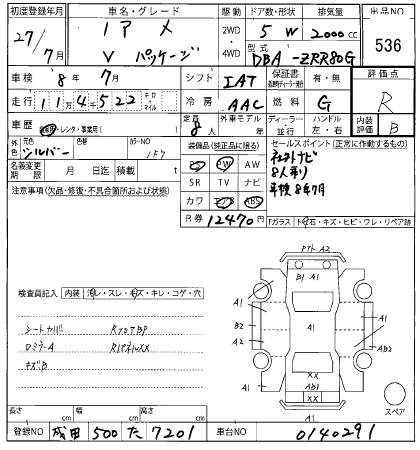 初度登録年月
27/7月
車名・グレード
ノア メ
V パッケージ
駆動
2WD
4WD
ドア数・形状
5 W
排気量
2000cc
型式
DBA-ZRR80G
出品NO
536
車検
8年7月
シフト
IAT
保証書
有・無
評価点
R
走行
114522
キロ・マイル
冷房
AAC
燃料
G
内装評価
B
車歴
レンタ・事業用( )
定員
8人
外車モデル
年
ディーラー
並行
ハンドル
左・右
外色
元色
シルバー
色替
カラーNO
1F7
装備品(純正品に限る)
PS PW AW
SR TV ナビ
カワ エアB ABS
セールスポイント(正常に作動するもの)
ナビ
8人乗り
車検8年7月
名義変更期限
月 日迄
積載 t
R券
12470円
注意事項(欠品・修復・不具合箇所および状態)
Fガラス トビ石・キズ・ヒビ・ワレ・リペア跡
検査員記入
内装 汚レ・スレ・キズ・キレ・コゲ・穴
シートカバー
RフロアBP
DミラーA
RパネルXX
キズB
A2
B A1
A1
A1
B2
A1
A2
AB2
A1
A1
XX
AB1
XX
スペア
長さ cm
幅 cm
高さ cm
登録NO
成田 500 た 7201
車台NO
0140291